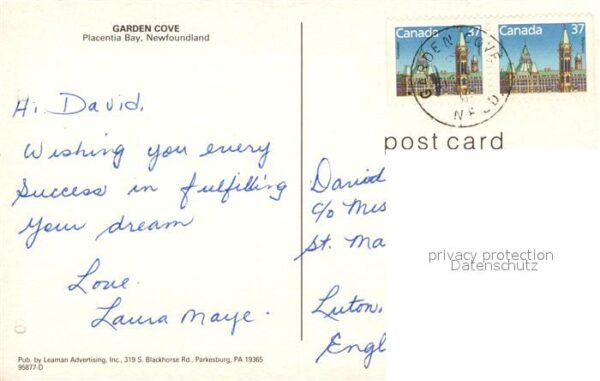 GARDEN COVE
Placentia Bay, Newfoundland
Canada 37
Canada 37
GARDEN COVE
NFLD
post card
Hi David,
Wishing you every
success in fulfilling
your dream
Love
Laura Maye.
David
c/o Miss
St. Ma
Luton,
Engl
privacy protection
Datenschutz
Pub. by Leaman Advertising, Inc., 319 S. Blackhorse Rd., Parkesburg, PA 19365
95877-D